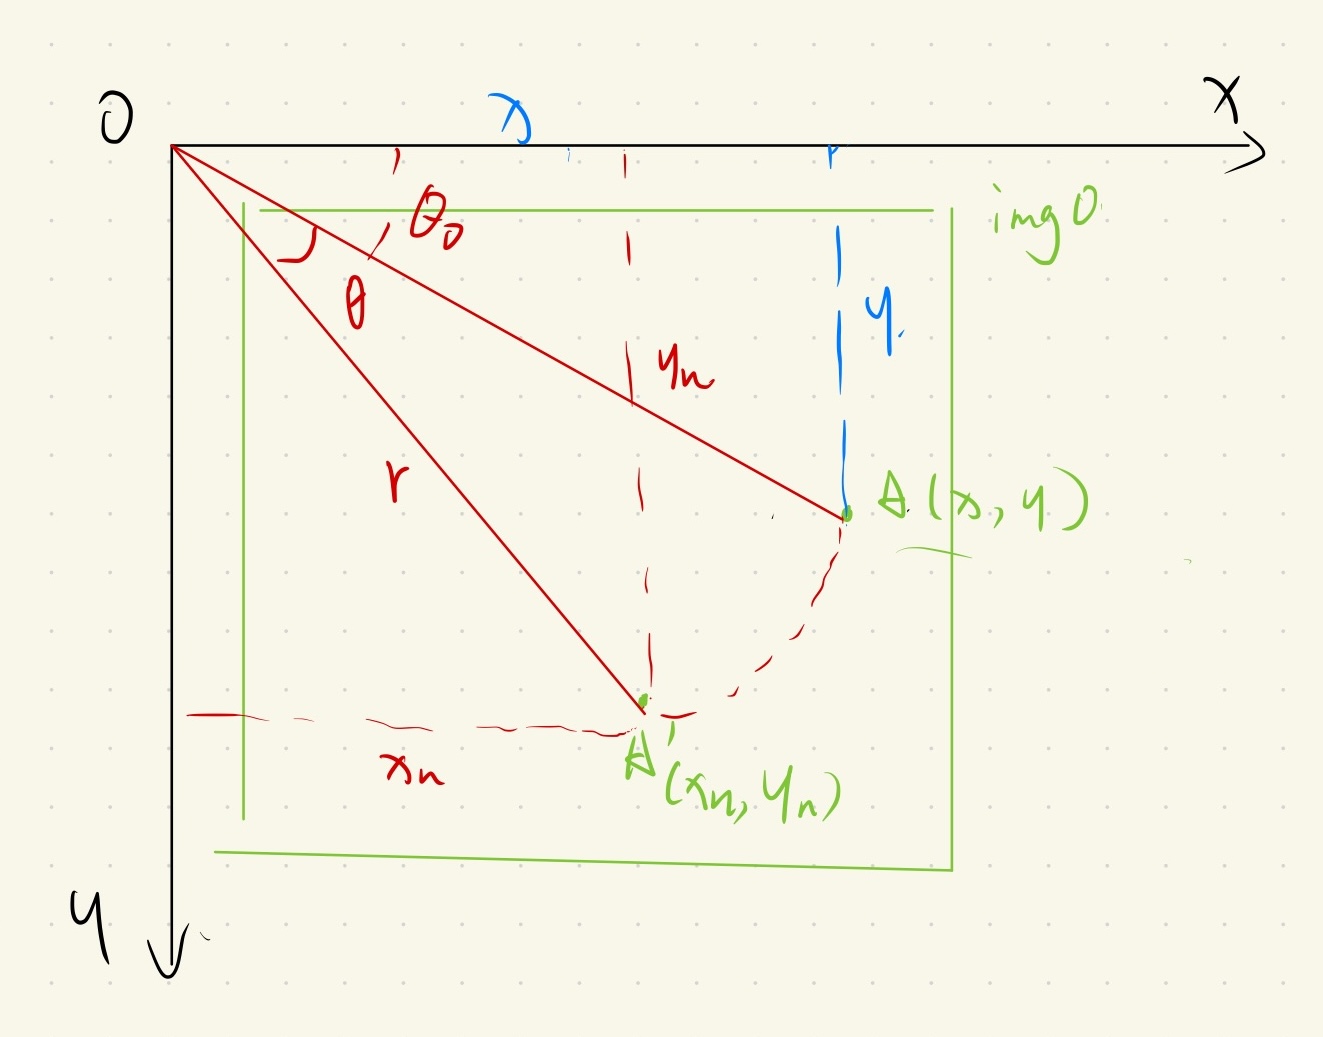 O
x
x
img0
θ₀
θ
y.
yₙ
r
A(x, y)
xₙ
A'(xₙ, yₙ)
y